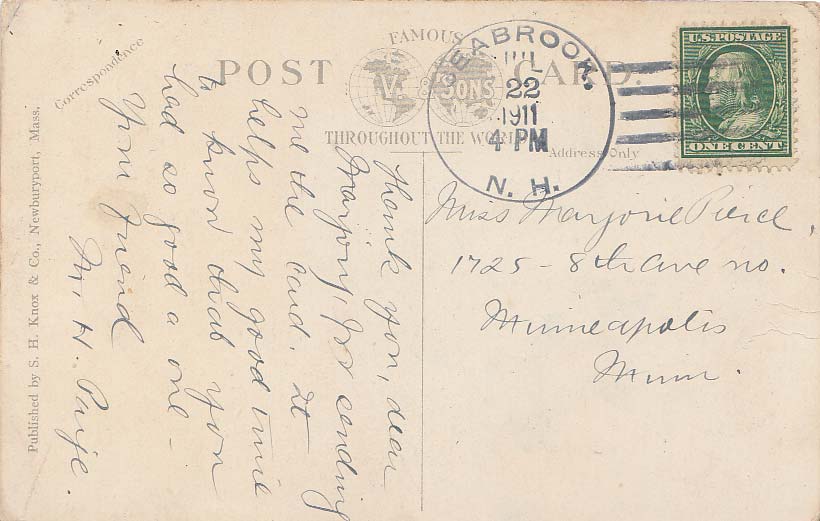 FAMOUS
POST CARD.
V. & SONS
THROUGHOUT THE WORLD
Correspondence
Address Only
SEABROOK,
JUL
22
1911
4 PM
N. H.
U.S. POSTAGE
ONE CENT
Thank you, dear
Marjory, for sending
me the card. It
helps my good time
to know that you
had so good a one –
Your friend
M. H. Paige.
Miss Marjorie Pierce,
1725 – 8th Ave no.
Minneapolis
Minn.
Published by S. H. Knox & Co., Newburyport, Mass.